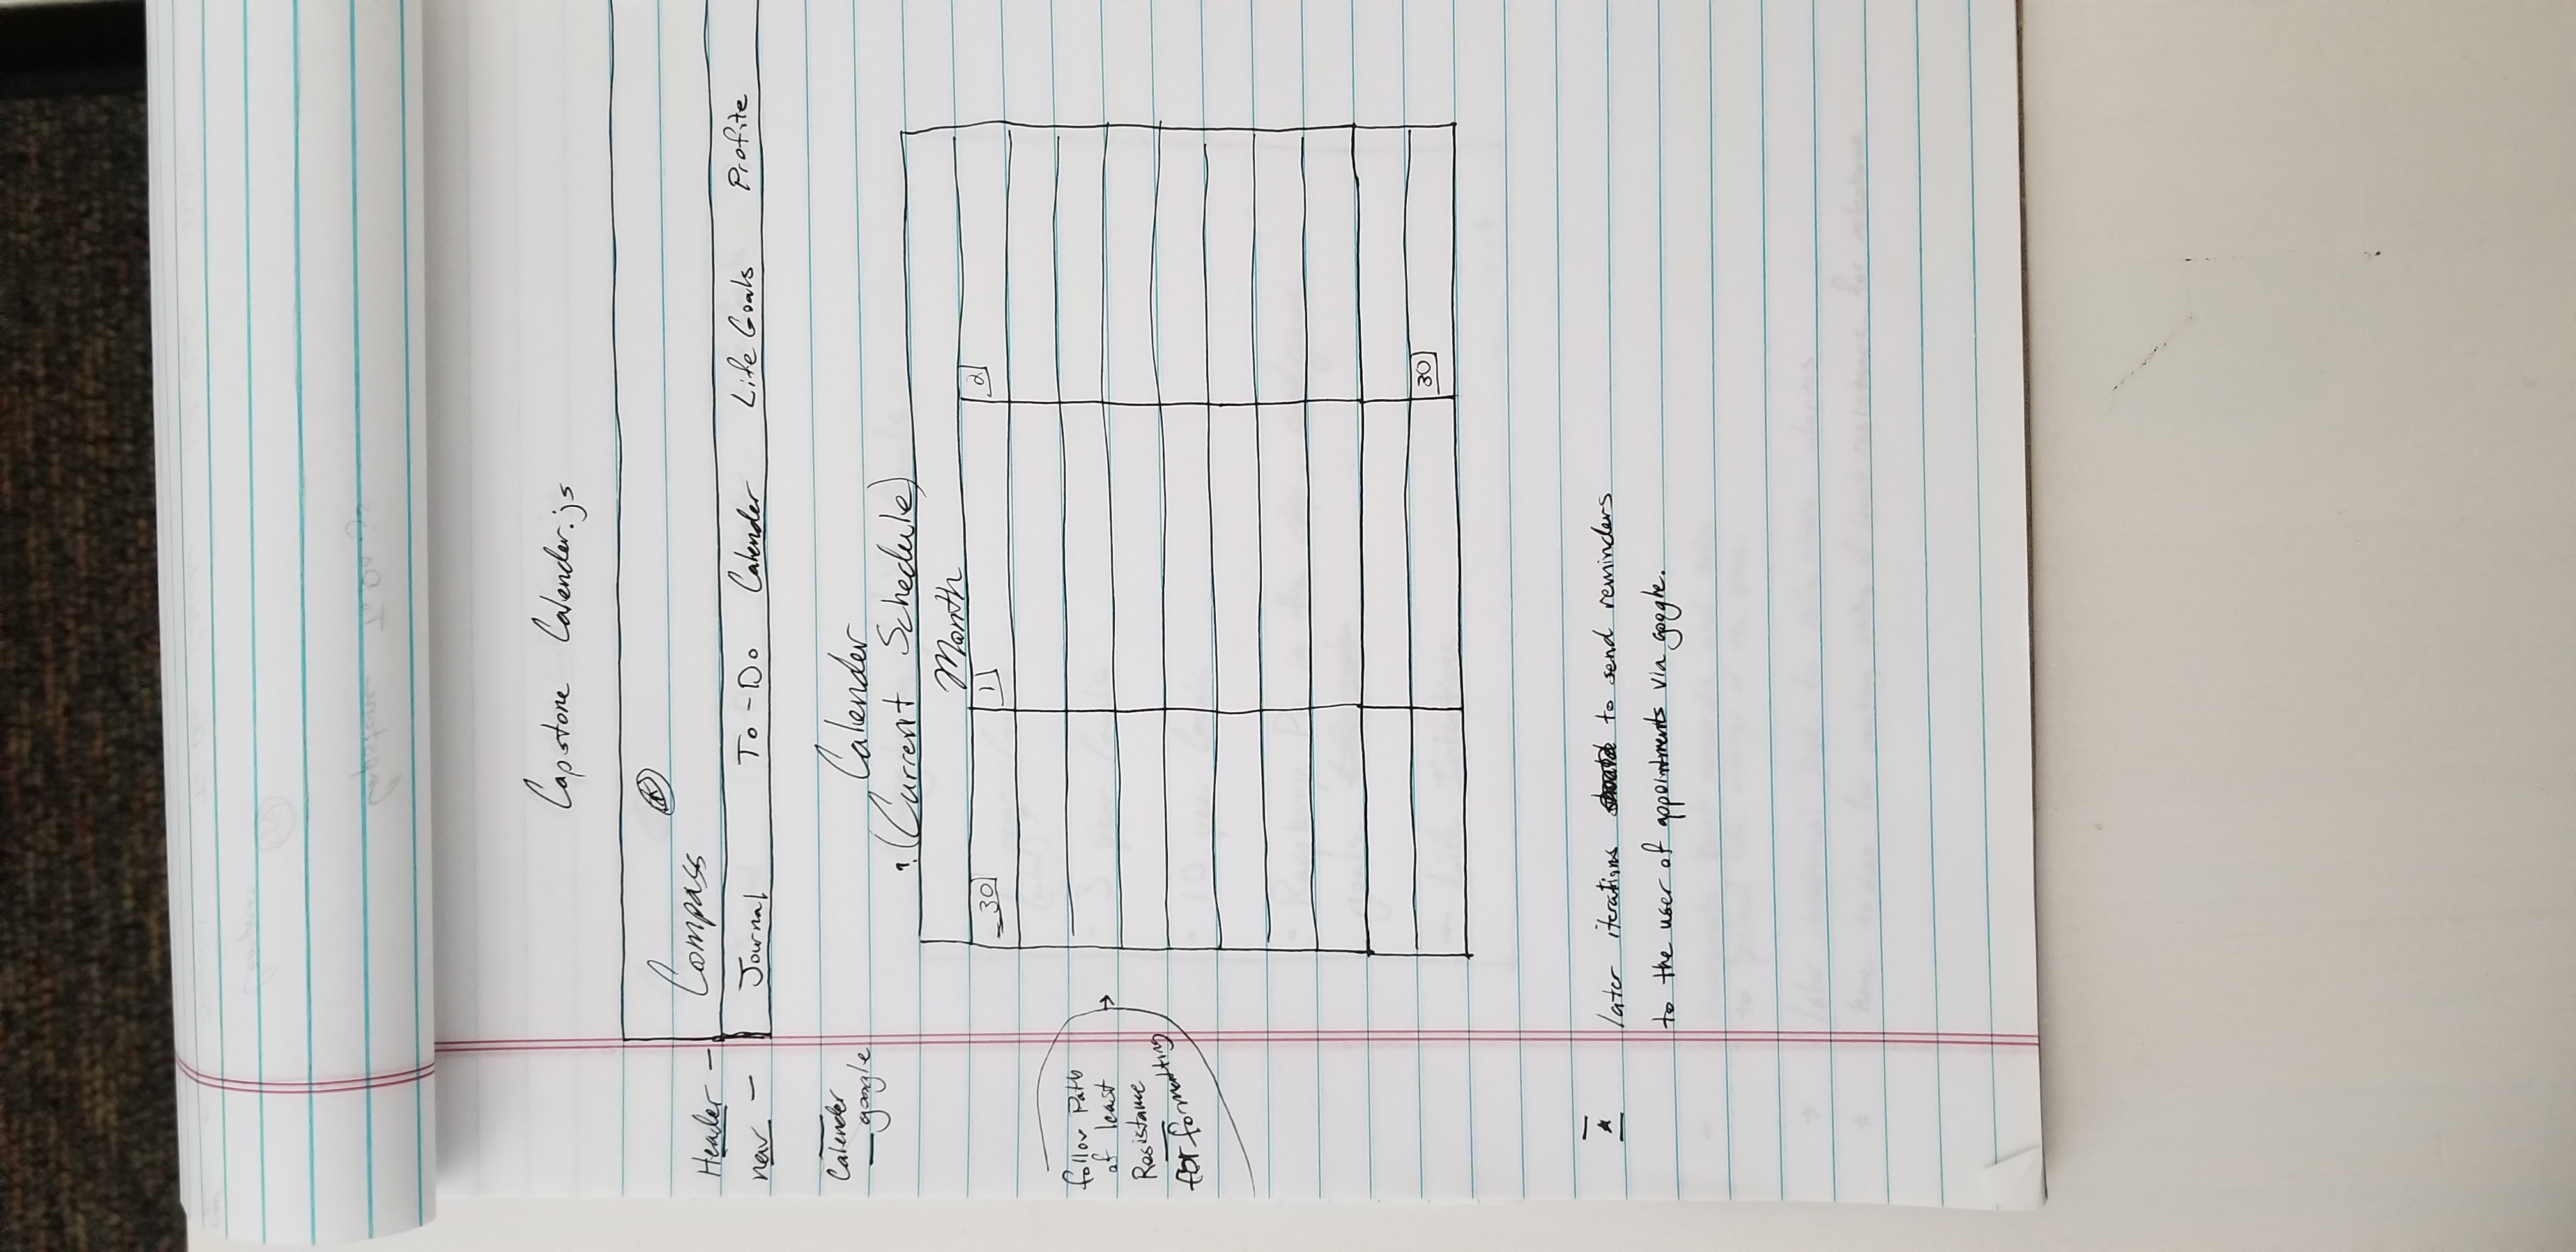 Capstone Calender.js
Compass
Header -
nav -
Journal To-Do Calender Life Goals Profile
Calender
google
Calender
? (Current Schedule)
Month
30 1 2
follow Path
of least
Resistance
for formatting
30
later iterations to send reminders
to the user of appointments via google.